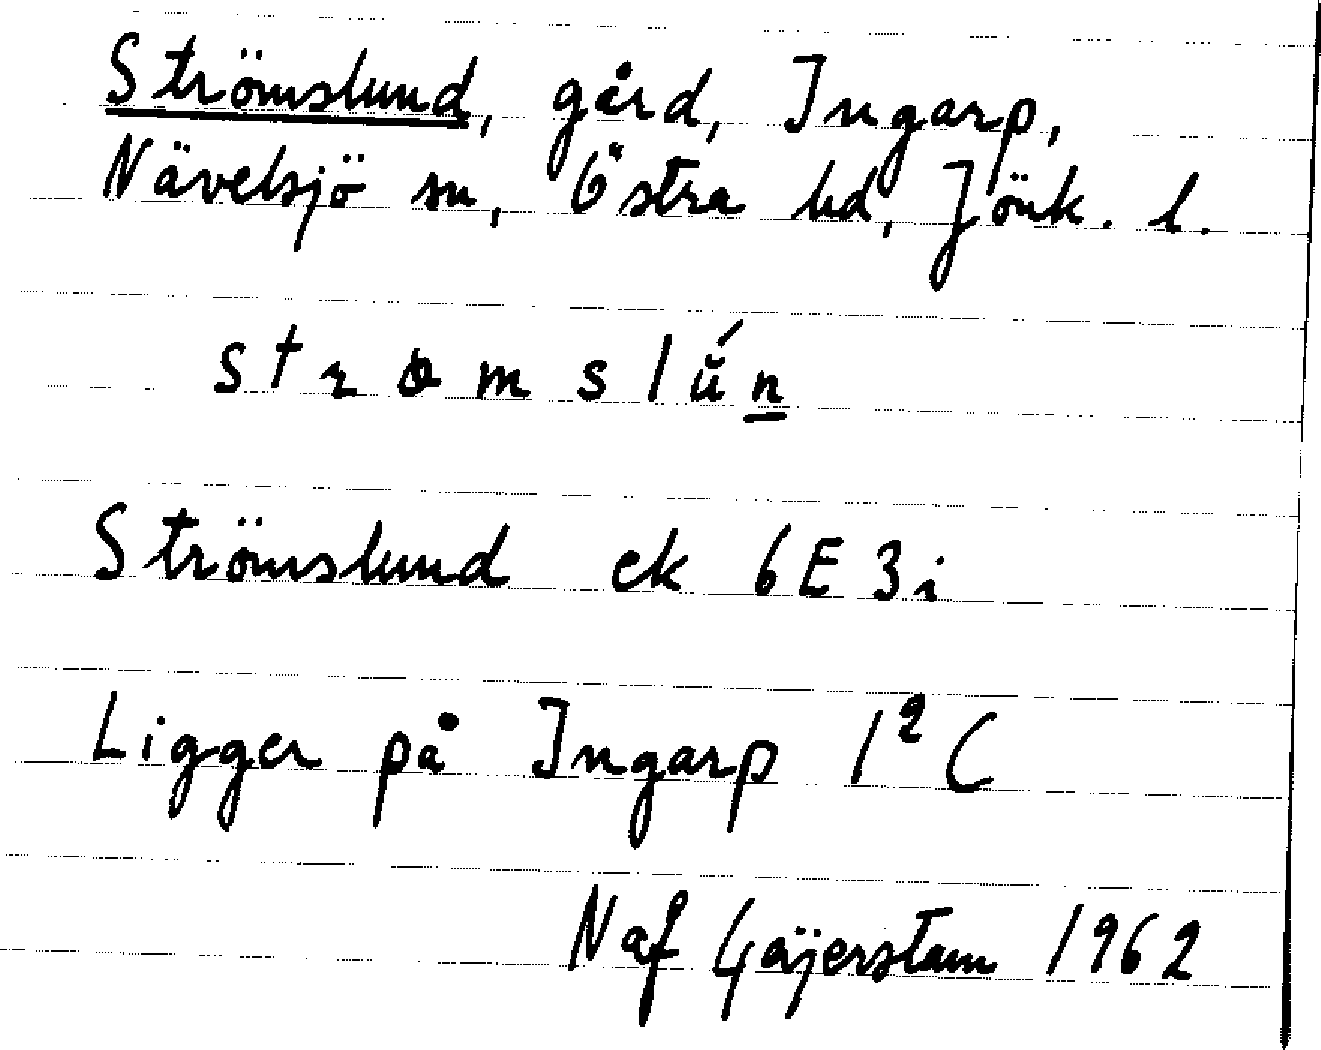 Strömslund, gård, Ingarp,
Nävelsjö sn, Östra hd, Jönk. l.
Strömslund ek 6E3i
Ligger på Ingarp 1² C
Naf Gäjerstam 1962